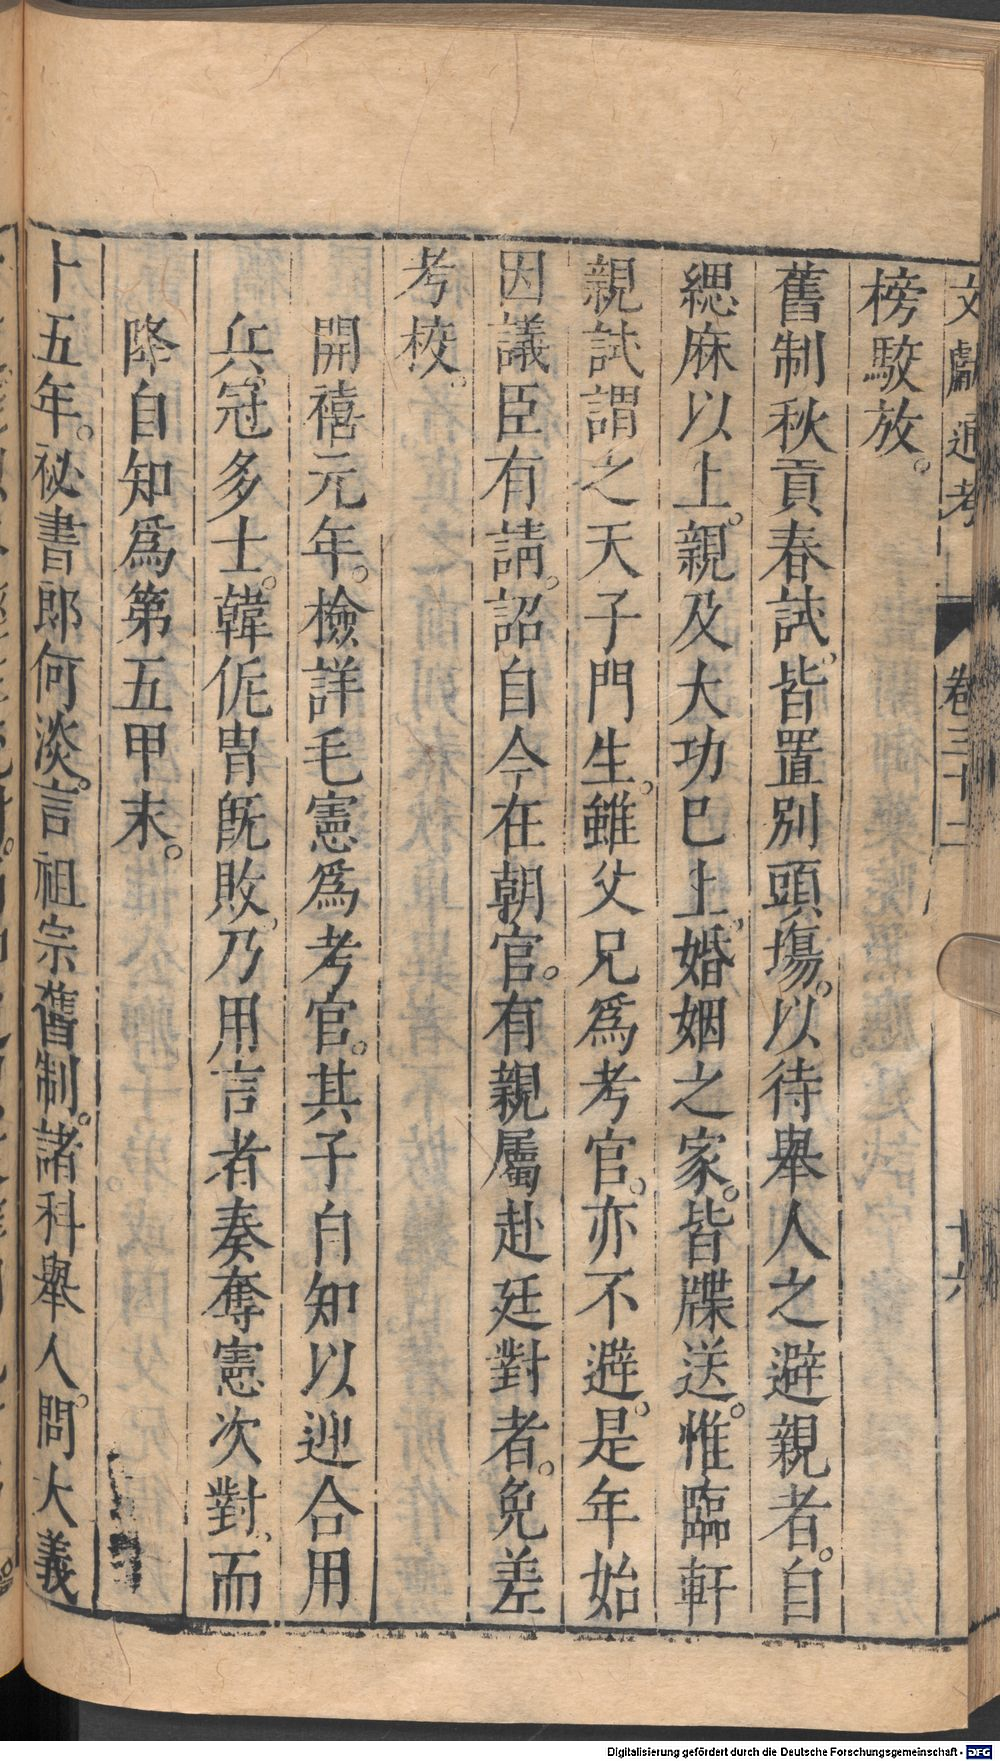 文獻通考 卷三十二 十六
榜駮放。
舊制秋貢春試。皆置別頭塲。以待舉人之避親者。自
緦麻以上。親及大功已上。婚姻之家。皆牒送。惟臨軒
親試謂之天子門生。雖父兄爲考官。亦不避。是年始
因議臣有請。詔自今在朝官。有親屬赴廷對者。免差
考校。
開禧元年。檢詳毛憲爲考官。其子自知以迎合用
兵。冠多士。韓侂胄旣敗。乃用言者奏奪憲次對。而
降自知爲第五甲末。
十五年。祕書郎何淡。言祖宗舊制。諸科舉人。問大義
Digitalisierung gefördert durch die Deutsche Forschungsgemeinschaft - DFG